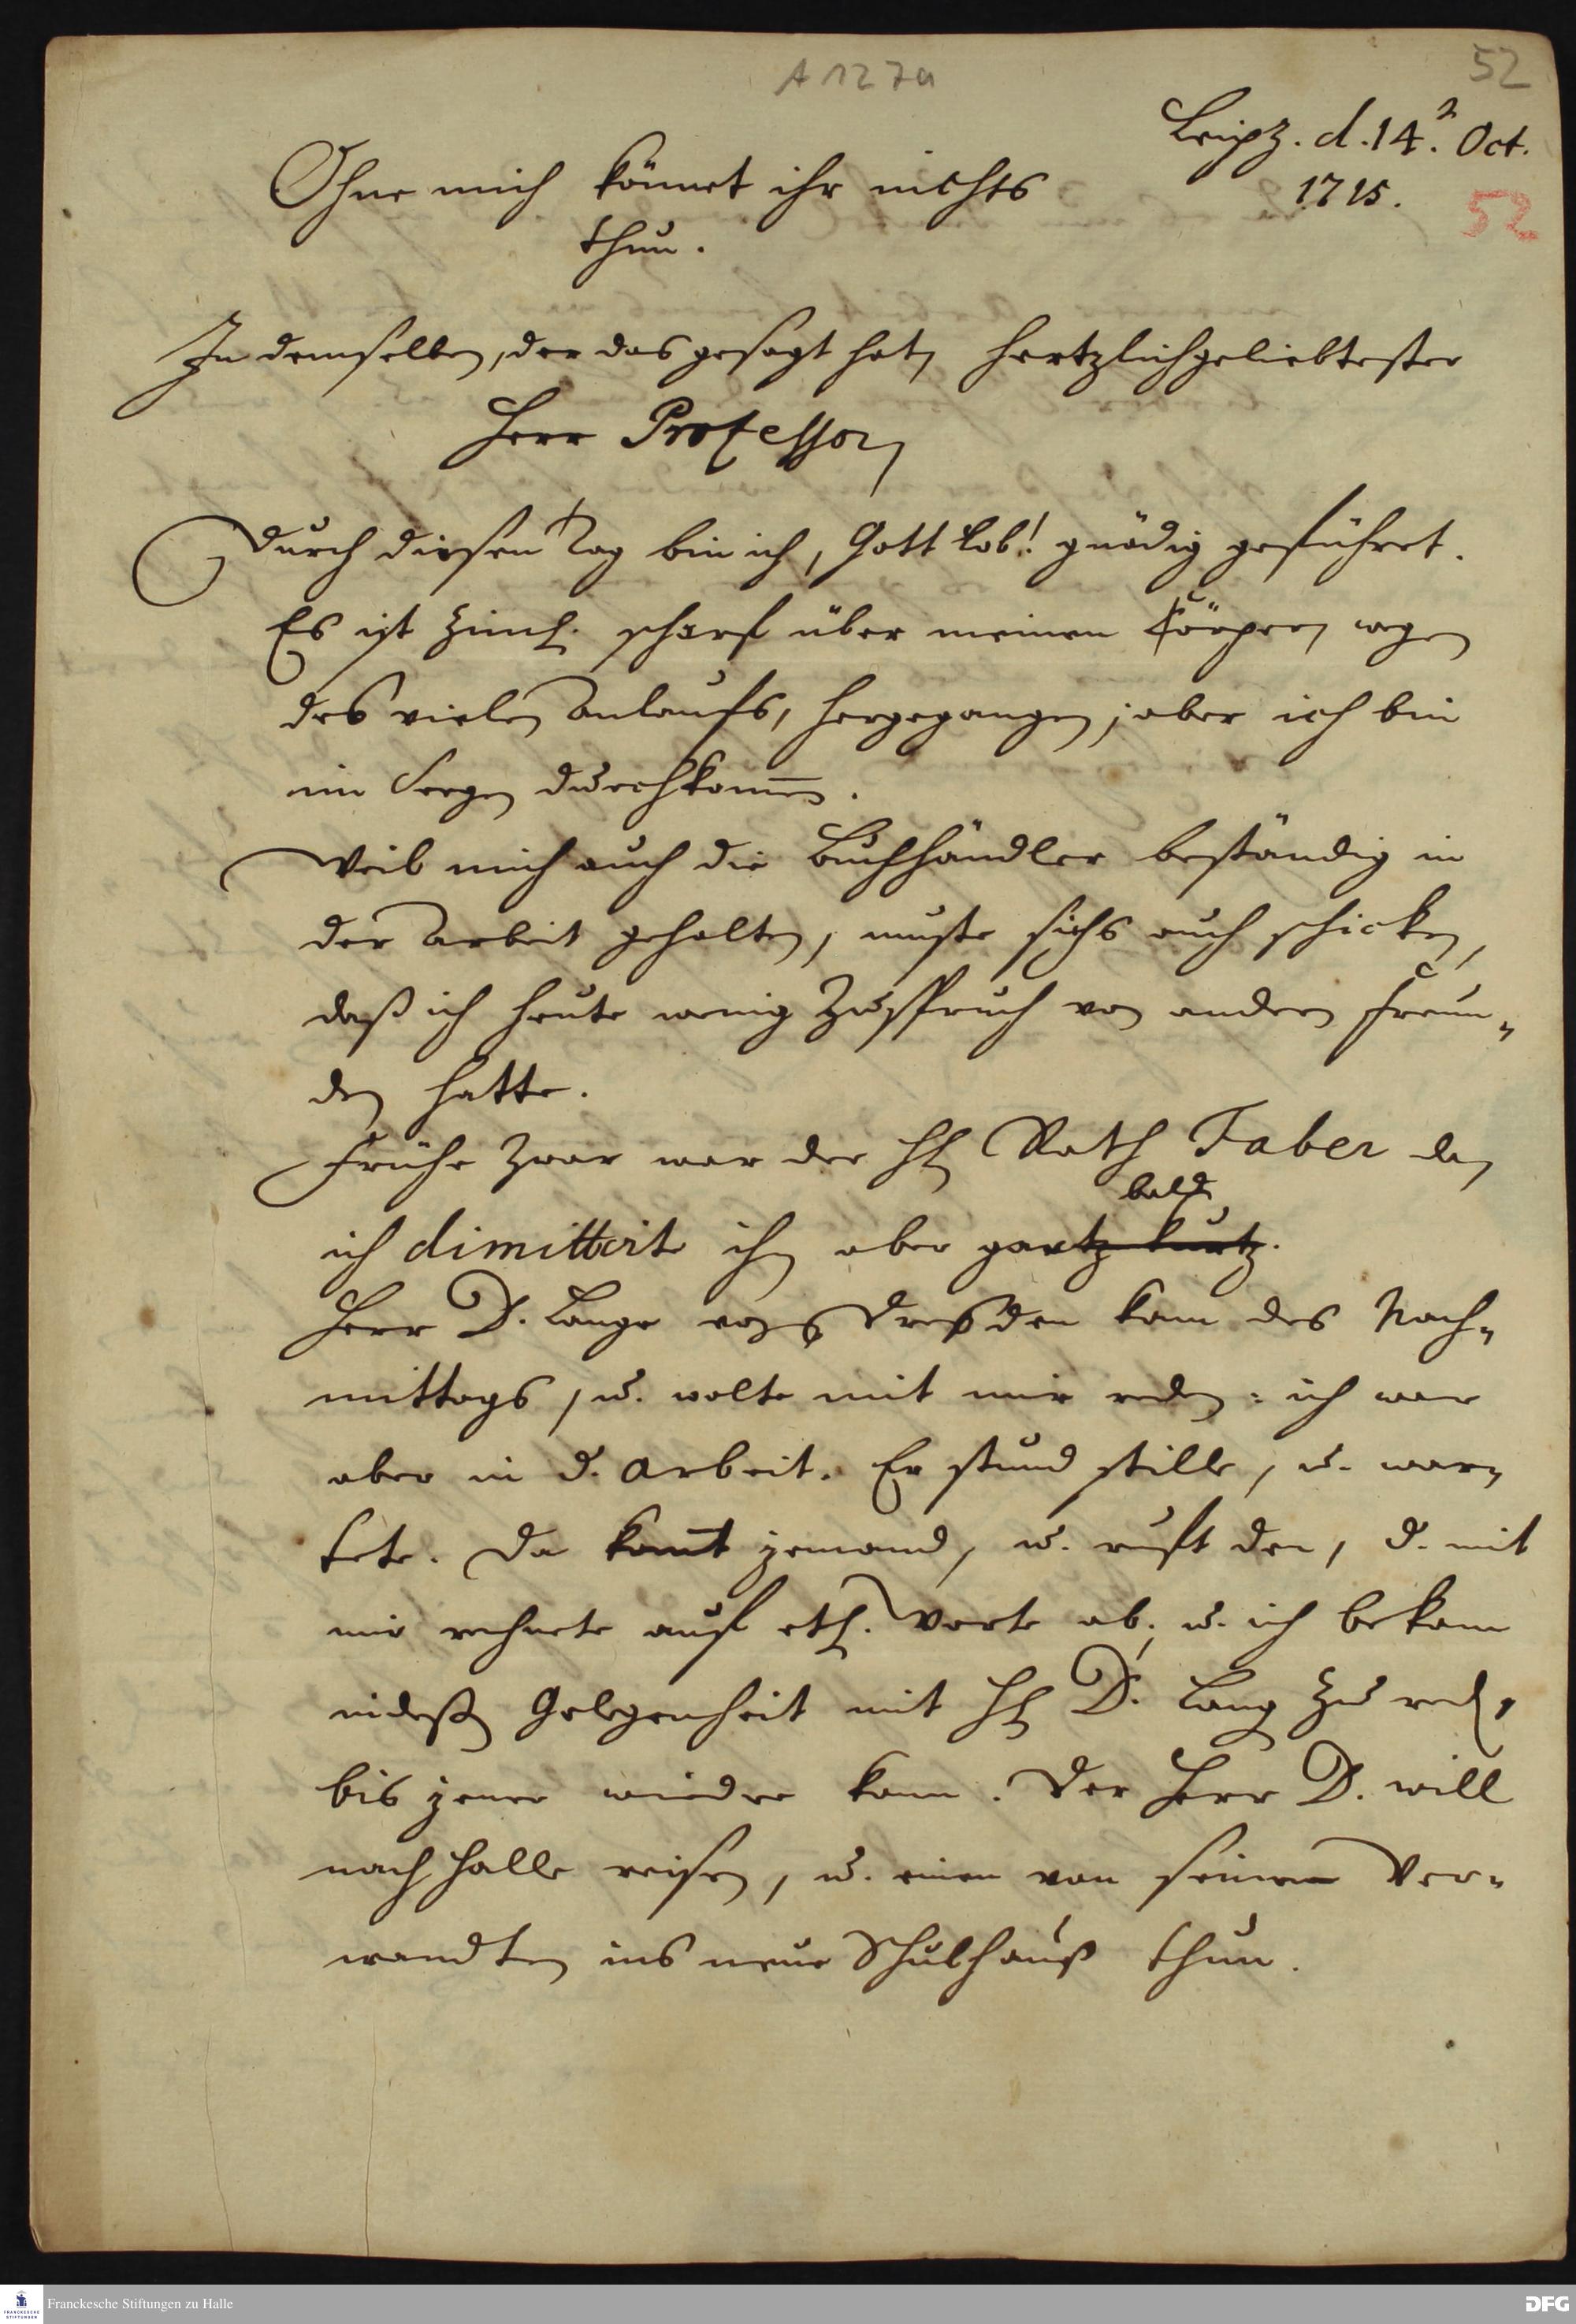 A 127a
52
Leipz. d. 14. Oct.
1715.
52
Ohne mich könnet ihr nichts
thun.
In demselben, der das gesagt hat, hertzlichgeliebtester
Herr Professor,
Durch diesen Tag bin ich, Gott Lob! gnädig geführet.
Es ist zimlich scharf über meinen Cörper, wegen
des vielen Anlaufs, hergegangen; aber ich bin
im Seegen durchkommen.
Weil mich auch die Buchhändler beständig in
der Arbeit gehalten, muste sichs auch schicken,
daß ich heute wenig Zuspruch von andern Freun-
den hatte.
Frühe zwar war der HH Rath Faber da,
bald
ich dimittirte ihn aber gantz kurtz.
Herr D. Lange von Dreßden kam des Nach-
mittags, u. wolte mit mir reden: ich war
aber in d. Arbeit. Er stund stille, u. war-
tete. Da komt jemand, u. ruft den, d. mit
mir rechnete auf etl. Worte ab; u. ich bekam
indeßen Gelegenheit mit HH D. Lang zu reden,
bis jener wieder kam. Der Herr D. will
nach Halle reisen, u. einen von seinen Ver-
wandten ins neue Schulhauß thun.
Franckesche Stiftungen zu Halle
DFG